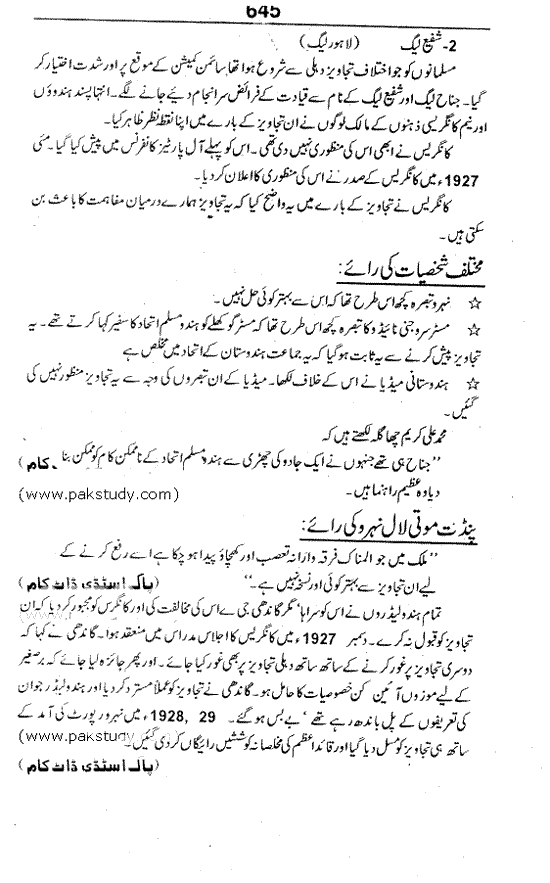 645
2- شفیع لیگ (لاہور لیگ)
مسلمانوں کو جو اختلاف تجاویز دہلی سے شروع ہوا تھا سائمن کمیشن کے موقع پر اور شدت اختیار کر
گیا۔ جناح لیگ اور شفیع لیگ کے نام سے قیادت کے فرائض سرانجام دیئے جانے لگے۔ انتہا پسند ہندوؤں
اور نیم کانگریسی ذہنوں کے مالک لوگوں نے ان تجاویز کے بارے میں اپنا نقطہ نظر ظاہر کیا۔
کانگریس نے ابھی اس کی منظوری نہیں دی تھی۔ اس کو پہلے آل پارٹیز کانفرنس میں پیش کیا گیا۔ مئی
1927ء میں کانگریس کے صدر نے اس کی منظوری کا اعلان کر دیا۔
کانگریس نے تجاویز کے بارے میں یہ واضح کیا کہ یہ تجاویز ہمارے درمیان مفاہمت کا باعث بن
سکتی ہیں۔
مختلف شخصیات کی رائے:
☆ نہرو تبصرہ کچھ اس طرح تھا کہ اس سے بہتر کوئی حل نہیں۔
☆ مسٹر سروجنی نائیڈو کا تبصرہ کچھ اس طرح تھا کہ مسٹر گوکھلے کو ہندو مسلم اتحاد کا سفیر کہا کرتے تھے۔ یہ
تجاویز پیش کرنے سے یہ ثابت ہو گیا کہ یہ جماعت ہندوستان کے اتحاد میں مخلص ہے
☆ ہندوستانی میڈیا نے اس کے خلاف لکھا۔ میڈیا کے ان تبصروں کی وجہ سے یہ تجاویز منظور نہیں کی
گئیں۔
محمد علی کریم چھاگلہ لکھتے ہیں کہ
”جناح ہی تھے جنہوں نے ایک جادو کی چھڑی سے ہندو مسلم اتحاد کے ناممکن کام کو ممکن بنا کام)
دیا وہ عظیم راہنما ہیں۔ (www.pakstudy.com)
پنڈت موتی لال نہرو کی رائے:
”ملک میں جو المناک فرقہ وارانہ تعصب اور کھچاؤ پیدا ہو چکا ہے اسے رفع کرنے کے
لیے ان تجاویز سے بہتر کوئی اور نسخہ نہیں ہے۔“ (پاک اسٹڈی ڈاٹ کام)
تمام ہندو لیڈروں نے اس کو سراہا مگر گاندھی جی اے اس کی مخالفت کی اور کانگرس کو مجبور کر دیا کہ ان
تجاویز کو قبول نہ کرے۔ دسمبر 1927ء میں کانگریس کا اجلاس مدراس میں منعقد ہوا۔ گاندھی نے کہا کہ
دوسری تجاویز پر غور کرنے کے ساتھ ساتھ دہلی تجاویز پر بھی غور کیا جائے۔ اور پھر جائزہ لیا جائے کہ برصغیر
کے لیے موزوں آئین کن خصوصیات کا حامل ہو۔ گاندھی نے تجاویز کو عملاً مسترد کر دیا اور ہندو لیڈر جو ان
کی تعریفوں کے پل باندھ رہے تھے بے بس ہو گئے۔ 29 ,1928ء میں نہرو رپورٹ کی آمد کے
ساتھ ہی تجاویز کو مسل دیا گیا اور قائداعظم کی مخلصانہ کوششیں رائیگاں کر دی گئیں۔ (www.pakstudy
(پاک اسٹڈی ڈاٹ کام)